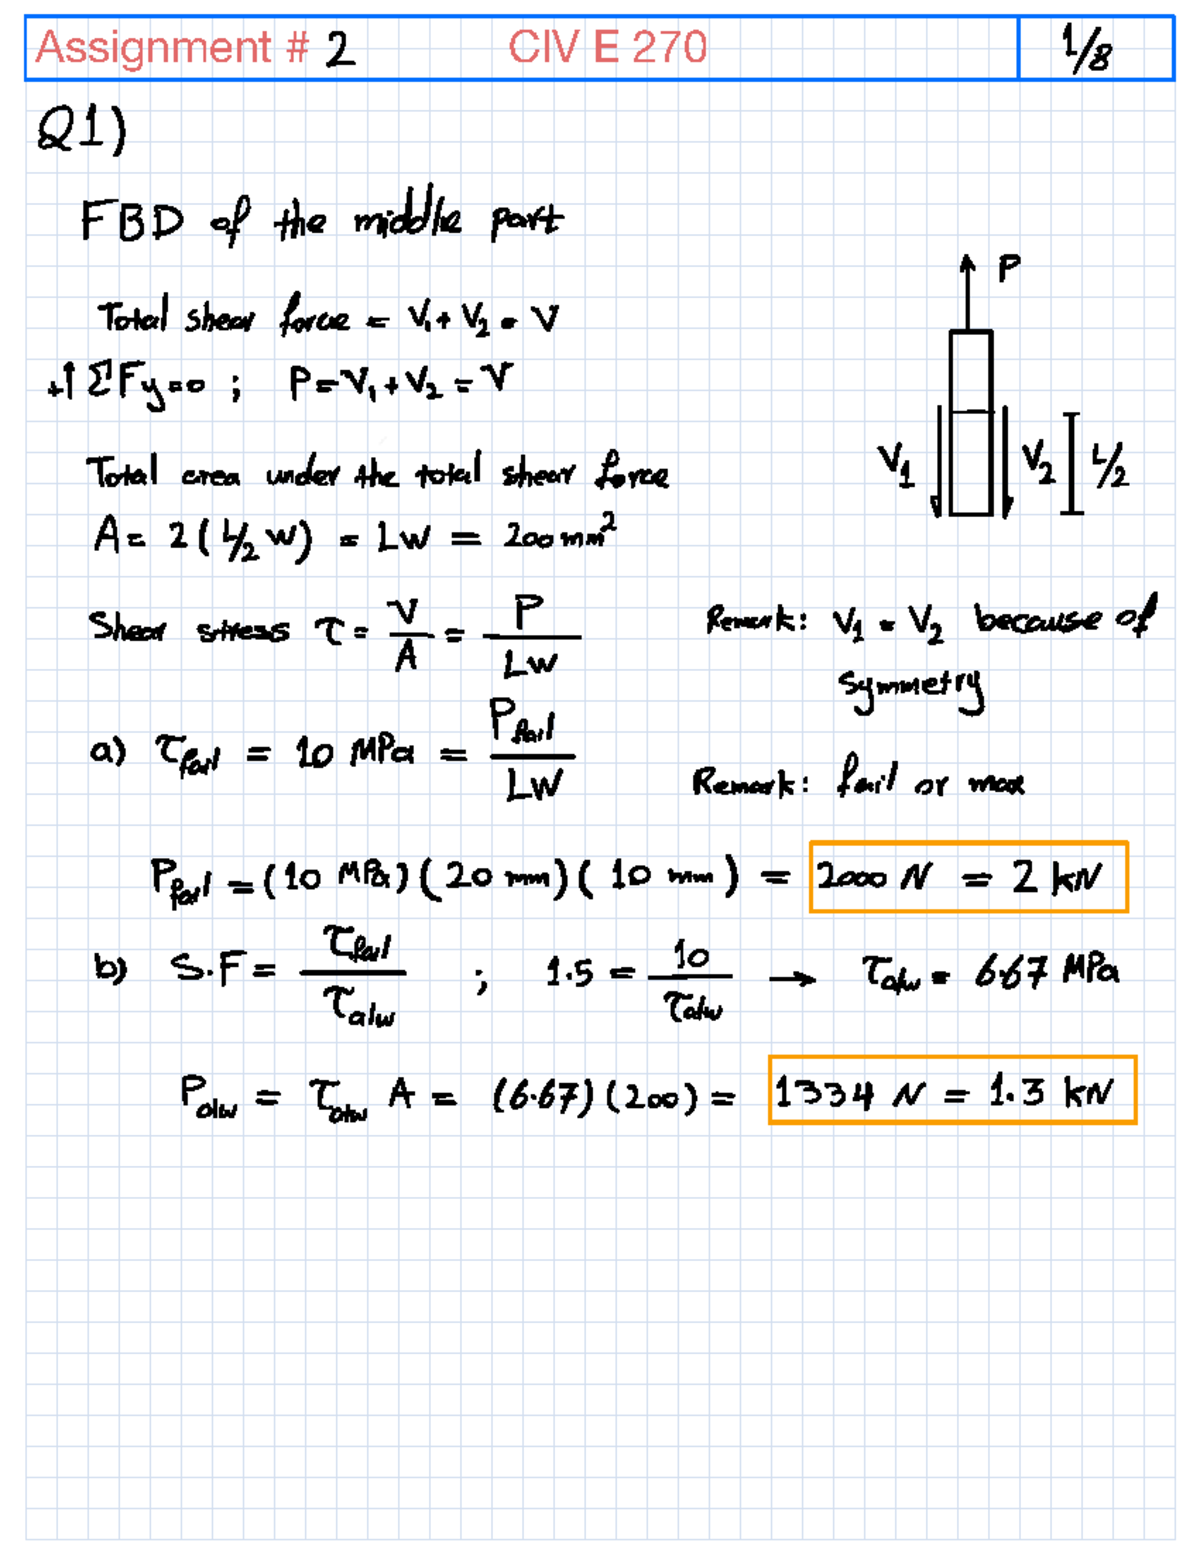 Assignment # 2 CIV E 270 1/8
Q1)
FBD of the middle part
P
Total shear force = V₁ + V₂ = V
+↑ ΣFy=0 ; P=V₁+V₂ = V
V₁ V₂ L/2
Total area under the total shear force
A = 2 ( L/2 W) = LW = 200 mm²
Shear stress τ = V/A = P/LW
Remark: V₁ = V₂ because of
symmetry
a) τfail = 10 MPa = Pfail/LW
Remark: fail or max
Pfail = (10 MPa) (20 mm) ( 10 mm ) = 2000 N = 2 kN
b) S.F = τfail/τalw ; 1.5 = 10/τalw → τalw = 6.67 MPa
Palw = τalw A = (6.67) (200) = 1334 N = 1.3 kN